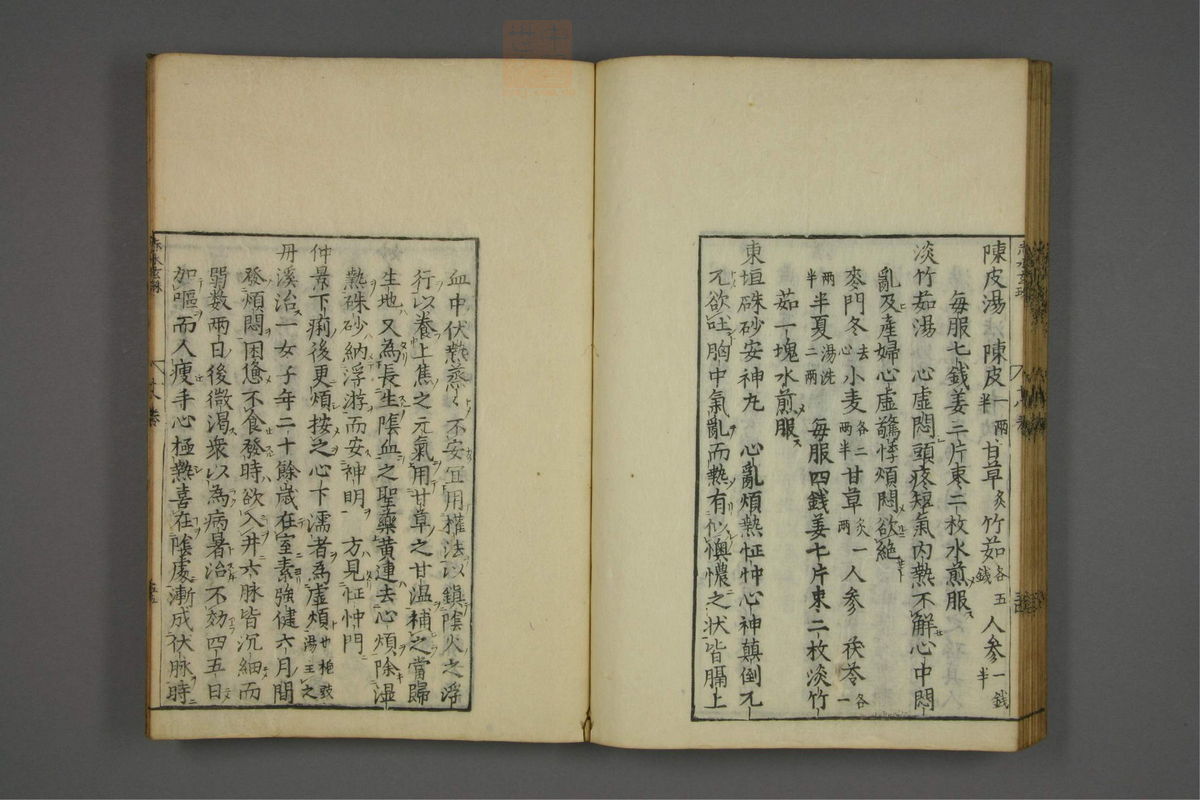 陳皮湯 陳皮一兩半 甘草炙 竹茹各五錢 人參一錢半
每服七錢姜三片棗二枚水煎服
淡竹茹湯 心虛悶頭疼短氣内熱不解心中悶
亂及產婦心虛驚悸煩悶欲絕
麥門冬去心 小麦各二兩半 甘草炙一兩 人參 茯苓各一兩半 半夏湯洗二兩 每服四錢姜七片棗二枚淡竹
茹一塊水煎服
東垣硃砂安神丸 心亂煩熱怔忡心神顛倒兀
兀欲吐胸中氣亂而熱有似懊憹之状皆膈上
血中伏熱蒸蒸不安宜用權法以鎮陰火之浮
行以養上焦之元氣用甘草之甘温補之當歸
生地又為長生陰血之聖藥黄連去心煩除湿
熱硃砂納浮游而安神明 方見怔忡門
仲景下痢後更煩按之心下濡者為虛煩
丹溪治一女子年二十餘歳在室素強健六月間
發煩悶困憊不食發時欲入井六脉皆沉細而
弱数兩日後微渴衆以為病暑治不効四五日
如嘔而人瘦手心極熱喜在陰處漸成伏脉時